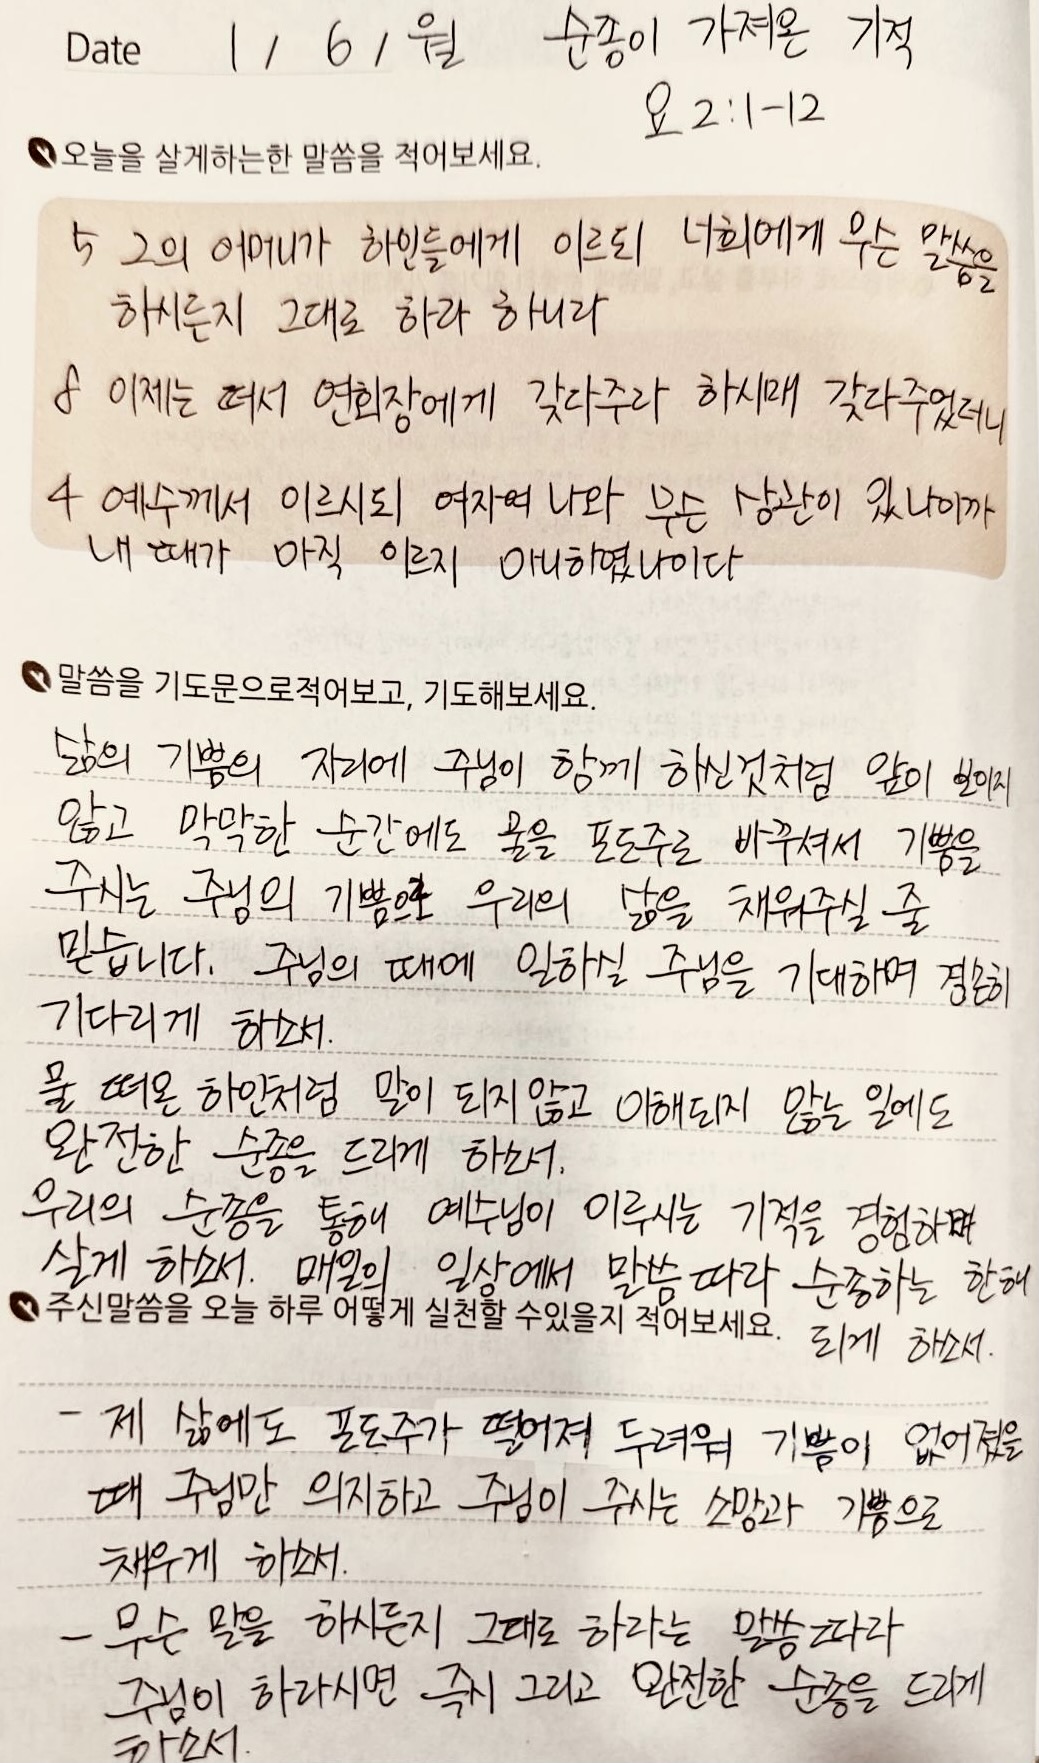 Date 1 / 6 / 월 순종이 가져온 기적
요 2:1-12
오늘을 살게하는한 말씀을 적어보세요.
5 그의 어머니가 하인들에게 이르되 너희에게 무슨 말씀을
하시든지 그대로 하라 하니라
8 이제는 떠서 연회장에게 갖다주라 하시매 갖다주었더니
4 예수께서 이르시되 여자여 나와 무슨 상관이 있나이까
내 때가 아직 이르지 아니하였나이다
말씀을 기도문으로적어보고, 기도해보세요.
삶의 기쁨의 자리에 주님이 함께 하신것처럼 앞이 보이지
않고 막막한 순간에도 물을 포도주로 바꾸셔서 기쁨을
주시는 주님의 기쁨으로 우리의 삶을 채워주실 줄
믿습니다. 주님의 때에 일하실 주님을 기대하며 겸손히
기다리게 하소서.
물 떠온 하인처럼 말이 되지 않고 이해되지 않는 일에도
완전한 순종을 드리게 하소서.
우리의 순종을 통해 예수님이 이루시는 기적을 경험하며
살게 하소서. 매일의 일상에서 말씀따라 순종하는 한해
주신말씀을 오늘 하루 어떻게 실천할 수있을지 적어보세요.
되게 하소서.
- 제 삶에도 포도주가 떨어져 두려워 기쁨이 없어졌을
때 주님만 의지하고 주님이 주시는 소망과 기쁨으로
채우게 하소서.
- 무슨 말을 하시든지 그대로 하라는 말씀따라
주님이 하라시면 즉시 그리고 완전한 순종을 드리게
하소서.